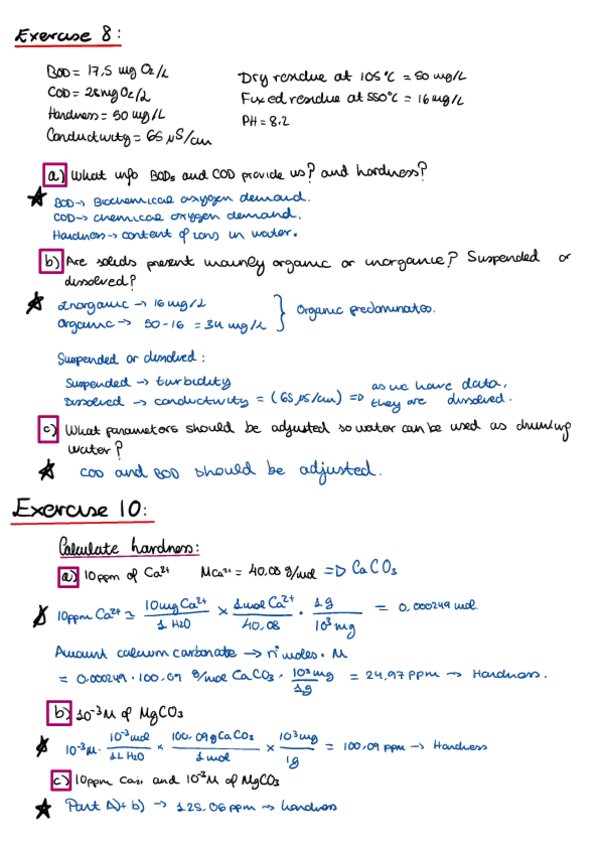 Exercise 8:
BOD = 17,5 mg O₂/L
Dry residue at 105°C = 50 mg/L
COD = 28 mg O₂/L
Fixed residue at 550°C = 16 mg/L
Hardness = 50 mg/L
PH = 8.2
Conductivity = 65 µS/cm
a) What info BOD₅ and COD provide us? and hardness?
BOD → Biochemical oxygen demand.
COD → chemical oxygen demand.
Hardness → content of ions in water.
b) Are solids present mainly organic or inorganic? Suspended or
dissolved?
Inorganic → 16 mg/L
Organic → 50 - 16 = 34 mg/L } Organic predominates.
Suspended or dissolved:
Suspended → turbidity
Dissolved → conductivity = (65 µS/cm) => as we have data, they are dissolved.
c) What parameters should be adjusted so water can be used as drinking
water?
COD and BOD should be adjusted.
Exercise 10:
Calculate hardness:
a) 10ppm of Ca²⁺ MCa²⁺ = 40,08 g/mol => CaCO₃
10ppm Ca²⁺ ≃ 10mg Ca²⁺/1 H₂O × 1mol Ca²⁺/40,08 · 1g/10³ mg = 0,000249 mol
Amount calcium carbonate → nº moles · M
= 0,000249 · 100,09 g/mol CaCO₃ · 10³ mg/1g = 24,97 ppm → Hardness.
b) 10⁻³M of MgCO₃
10⁻³M · 10⁻³mol/1L H₂O × 100,09g CaCO₃/1mol × 10³mg/1g = 100,09 ppm → Hardness
c) 10ppm and 10⁻³M of MgCO₃
Part A) + b) → 125.06 ppm → hardness